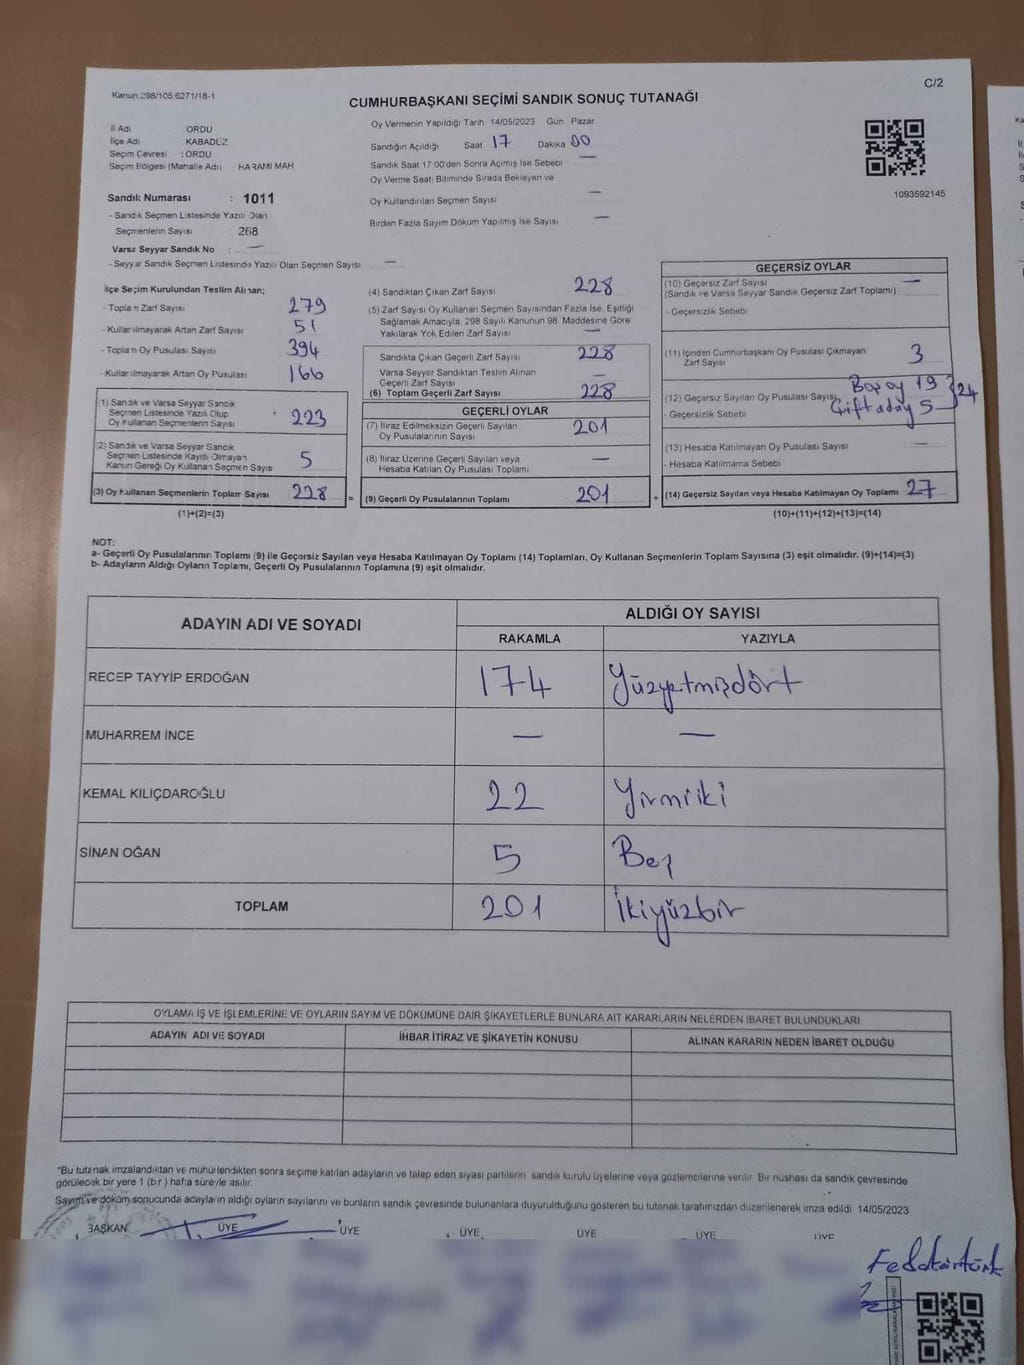 Kanun 298/105,6271/18-1
C/2
CUMHURBAŞKANI SEÇİMİ SANDIK SONUÇ TUTANAĞI
İl Adı ORDU
İlçe Adı KABADÜZ
Seçim Çevresi : ORDU
Seçim Bölgesi (Mahalle Adı) HARAMİ MAH
Sandık Numarası : 1011
- Sandık Seçmen Listesinde Yazılı Olan
Seçmenlerin Sayısı 268
Varsa Seyyar Sandık No : —
- Seyyar Sandık Seçmen Listesinde Yazılı Olan Seçmen Sayısı —
Oy Vermenin Yapıldığı Tarih 14/05/2023 Gün Pazar
Sandığın Açıldığı Saat 17 Dakika 00
Sandık Saat 17.00'den Sonra Açımış İse Sebebi —
Oy Verme Saati Bitiminde Sırada Bekleyen ve
Oy Kullandırılan Seçmen Sayısı —
Birden Fazla Sayım Döküm Yapılmış İse Sayısı —
1093592145
İlçe Seçim Kurulundan Teslim Alınan;
- Toplan Zarf Sayısı 279
- Kullanılmayarak Artan Zarf Sayısı 51
- Toplam Oy Pusulası Sayısı 394
- Kullanılmayarak Artan Oy Pusulası 166
(1) Sandık ve Varsa Seyyar Sandık
Seçmen Listesinde Yazılı Olup
Oy Kullanan Seçmenlerin Sayısı 223
(2) Sandık ve Varsa Seyyar Sandık
Seçmen Listesinde Kayıtlı Olmayan
Kanun Gereği Oy Kullanan Seçmen Sayıs 5
(3) Oy Kullanan Seçmenlerin Toplam Sayısı 228 =
(1)+(2)=(3)
(4) Sandıktan Çıkan Zarf Sayısı 228
(5) Zarf Sayısı Oy Kullanan Seçmen Sayısından Fazla İse, Eşitliği
Sağlamak Amacıyla, 298 Sayılı Kanunun 98. Maddesine Göre
Yakılarak Yok Edilen Zarf Sayısı —
Sandıkta Çıkan Geçerli Zarf Sayısı 228
Varsa Seyyar Sandıktan Teslim Alınan
Geçerli Zarf Sayısı —
(6) Toplam Geçerli Zarf Sayısı 228
GEÇERLİ OYLAR
(7) İtiraz Edilmeksizin Geçerli Sayılan
Oy Pusulalarının Sayısı 201
(8) İtiraz Üzerine Geçerli Sayılan veya
Hesaba Katılan Oy Pusulası Toplamı —
(9) Geçerli Oy Pusulalarının Toplamı 201 +
GEÇERSİZ OYLAR
(10) Geçersiz Zarf Sayısı —
(Sandık ve Varsa Seyyar Sandık Geçersiz Zarf Toplamı)
- Geçersizlik Sebebi
(11) İçinden Cumhurbaşkanı Oy Pusulası Çıkmayan
Zarf Sayısı 3
(12) Geçersiz Sayılan Oy Pusulası Sayısı Boş oy 19
- Geçersizlik Sebebi Çift aday 5 24
(13) Hesaba Katılmayan Oy Pusulası Sayısı —
- Hesaba Katılmama Sebebi
(14) Geçersiz Sayılan veya Hesaba Katılmayan Oy Toplamı 27
(10)+(11)+(12)+(13)=(14)
NOT:
a- Geçerli Oy Pusulalarının Toplamı (9) ile Geçersiz Sayılan veya Hesaba Katılmayan Oy Toplamı (14) Toplamları, Oy Kullanan Seçmenlerin Toplam Sayısına (3) eşit olmalıdır. (9)+(14)=(3)
b- Adayların Aldığı Oyların Toplamı, Geçerli Oy Pusulalarının Toplamına (9) eşit olmalıdır.
ADAYIN ADI VE SOYADI ALDIĞI OY SAYISI
RAKAMLA YAZIYLA
RECEP TAYYİP ERDOĞAN 174 Yüzyetmişdört
MUHARREM İNCE — —
KEMAL KILIÇDAROĞLU 22 Yirmiiki
SİNAN OĞAN 5 Beş
TOPLAM 201 İkiyüzbir
OYLAMA İŞ VE İŞLEMLERİNE VE OYLARIN SAYIM VE DÖKÜMÜNE DAİR ŞİKAYETLERLE BUNLARA AİT KARARLARIN NELERDEN İBARET BULUNDUKLARI
ADAYIN ADI VE SOYADI İHBAR İTİRAZ VE ŞİKAYETİN KONUSU ALINAN KARARIN NEDEN İBARET OLDUĞU
*Bu tutanak imzalandıktan ve mühürlendikten sonra seçime katılan adayların ve talep eden siyasi partilerin sandık kurulu üyelerine veya gözlemcilerine verilir. Bir nüshası da sandık çevresinde
görülecek bir yere 1 (bir) hafta süreyle asılır.
Sayım ve döküm sonucunda adayların aldığı oyların sayılarını ve bunların sandık çevresinde bulunanlara duyurulduğunu gösteren bu tutanak tarafımızdan düzenlenerek imza edildi. 14/05/2023
BAŞKAN ÜYE ÜYE ÜYE ÜYE ÜYE ÜYE